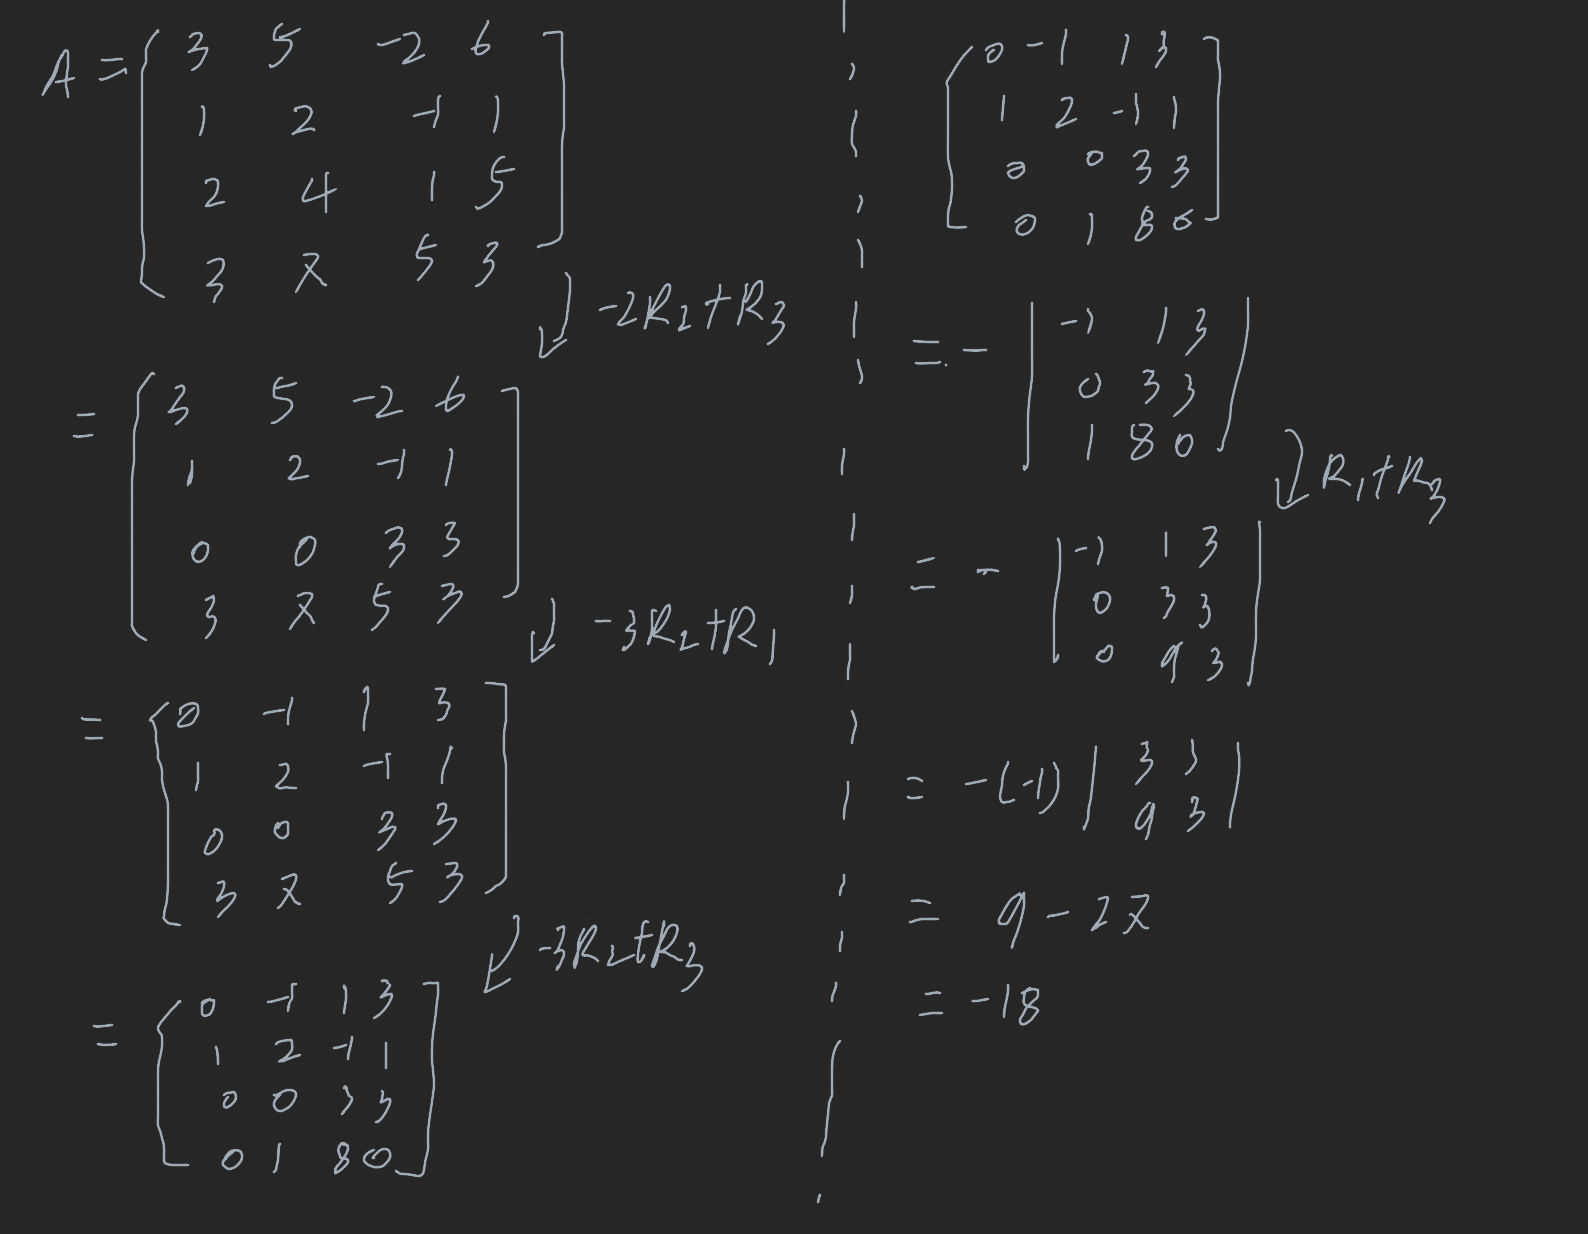 A = [ 3 5 -2 6
1 2 -1 1
2 4 1 5
3 7 5 3 ]
-2R₂+R₃
= [ 3 5 -2 6
1 2 -1 1
0 0 3 3
3 7 5 3 ]
-3R₂+R₁
= [ 0 -1 1 3
1 2 -1 1
0 0 3 3
3 7 5 3 ]
-3R₂+R₃
= [ 0 -1 1 3
1 2 -1 1
0 0 3 3
0 1 8 0 ]
[ 0 -1 1 3
1 2 -1 1
0 0 3 3
0 1 8 0 ]
= - | -1 1 3
0 3 3
1 8 0 |
R₁+R₃
= - | -1 1 3
0 3 3
0 9 3 |
= -(-1) | 3 3
9 3 |
= 9 - 27
= -18